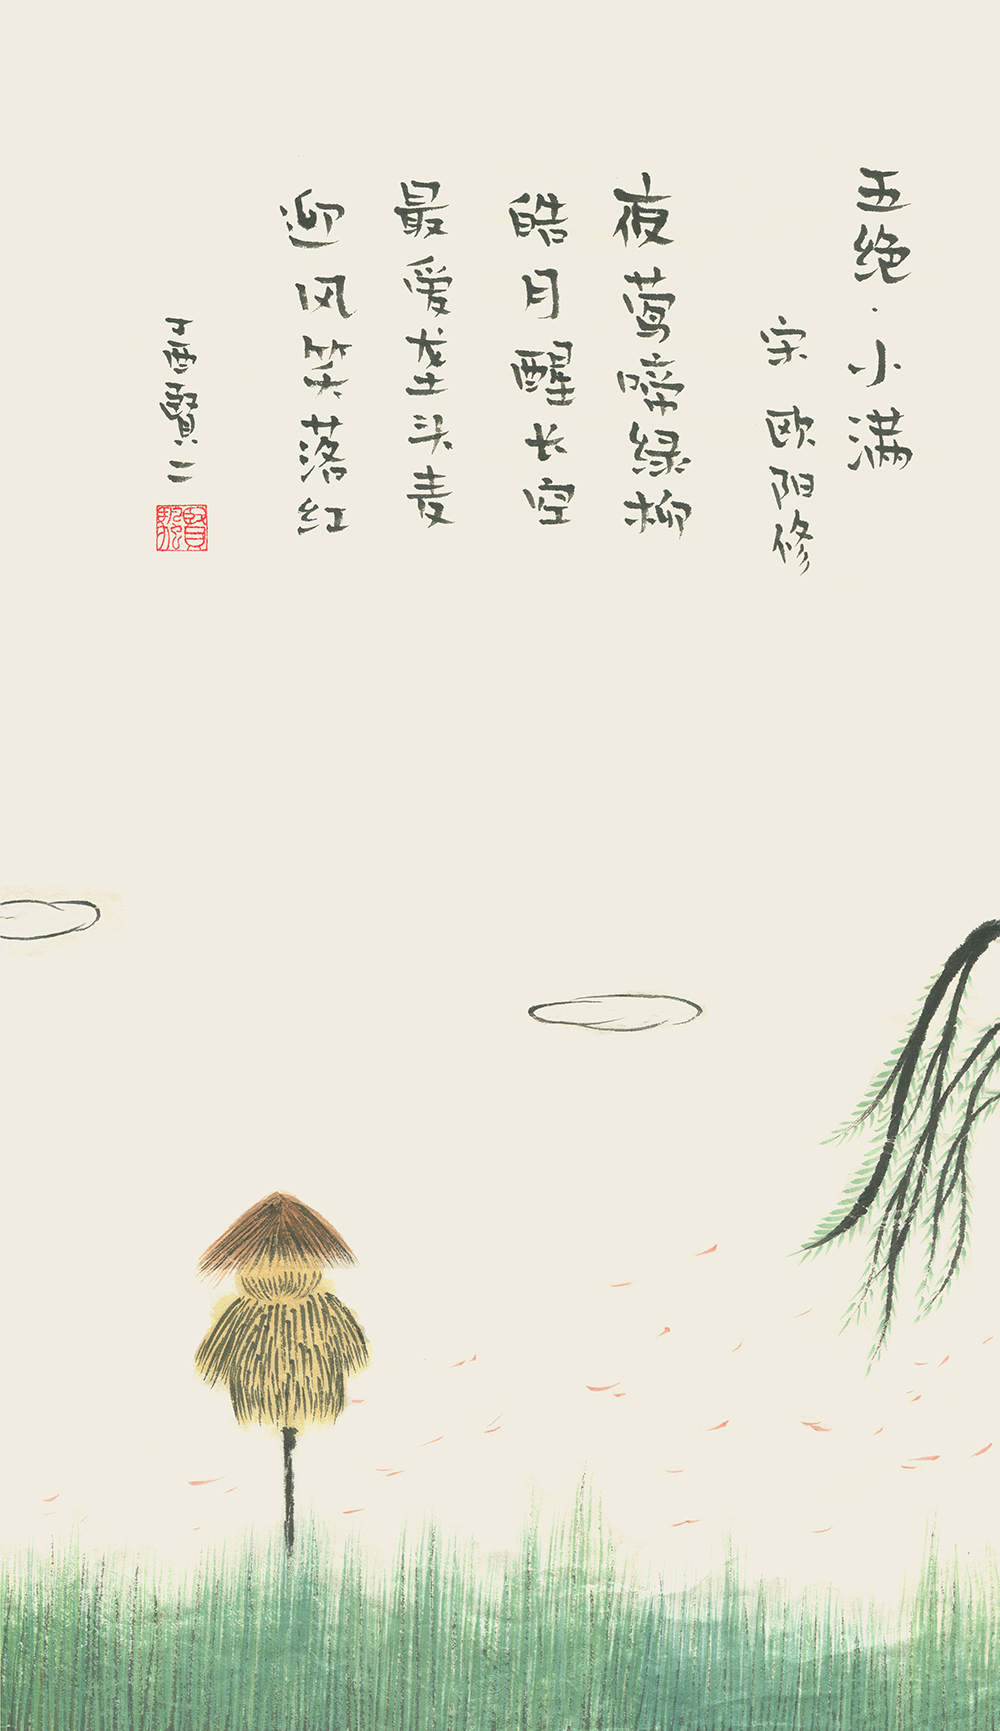 五绝·小满
宋 欧阳修
夜莺啼绿柳
皓月醒长空
最爱垄头麦
迎风笑落红
丁酉賢二